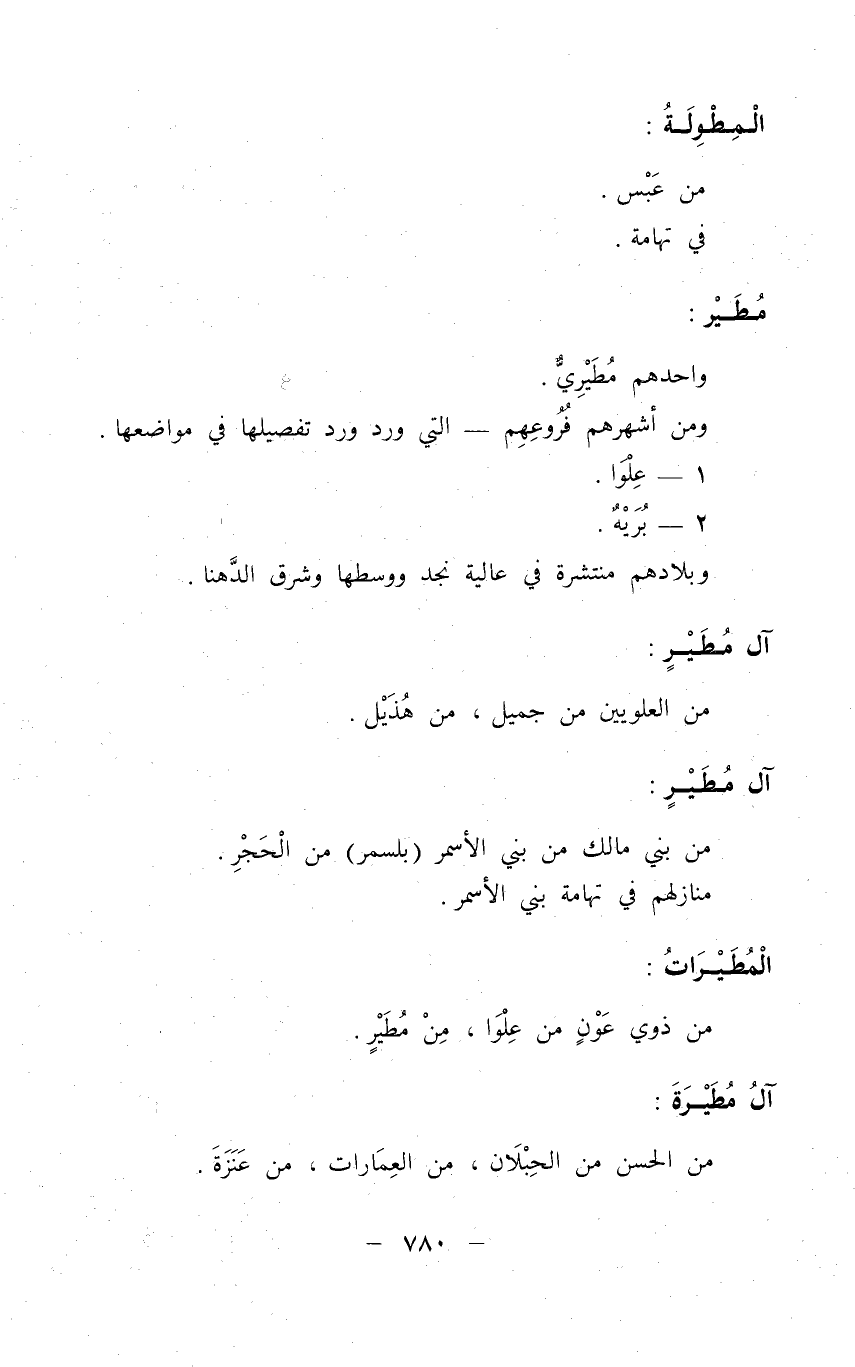 الْـمِـطْـوِلَــةُ :
من عَبْس .
في تهامة .
مُـطَــيْر :
واحدهم مُطَيْرِيٌّ .
ومن أشهرهم فُرُوعِهِم — التي ورد ورد تفصيلها في مواضعها .
١ — عِلْوَا .
٢ — بُرَيْهٌ .
وبلادهم منتشرة في عالية نجد ووسطها وشرق الدَّهنا .
آل مُـطَـيْــرٍ :
من العلويين من جميل ، من هُذَيْل .
آل مُـطَـيْــرٍ :
من بني مالك من بني الأسمر (بلسمر) من الْحَجْرِ .
منازلهم في تهامة بني الأسمر .
الْمُطَـيْــرَاتُ :
من ذوي عَوْنٍ من عِلْوَا ، مِنْ مُطَيْرٍ .
آلُ مُطَيْــرَةَ :
من الحسن من الحِبْلَان ، من العِمَارات ، من عَنَزَةَ .
— ٧٨٠ —